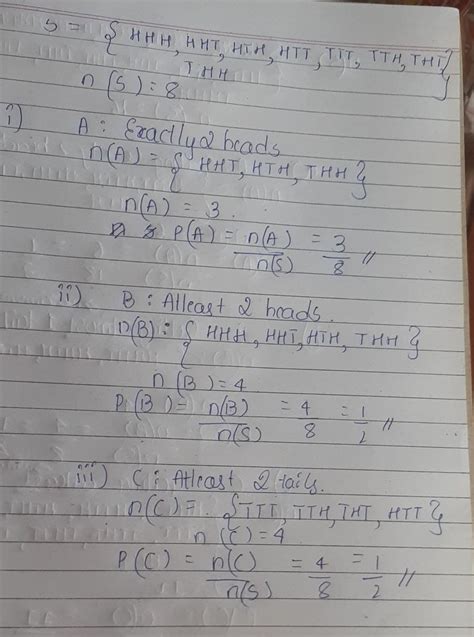 S = { HHH, HHT, HTH, HTT, TTT, TTH, THT
THH }
n(S) = 8
i) A : Exactly 2 heads
n(A) = { HHT, HTH, THH }
n(A) = 3.
P(A) = n(A)/n(S) = 3/8 //
ii) B : Atleast 2 heads.
n(B) : { HHH, HHT, HTH, THH }
n(B) = 4
P(B) = n(B)/n(S) = 4/8 = 1/2 //
iii) C : Atleast 2 tails.
n(C) = {TTT, TTH, THT, HTT }
n(C) = 4
P(C) = n(C)/n(S) = 4/8 = 1/2 //